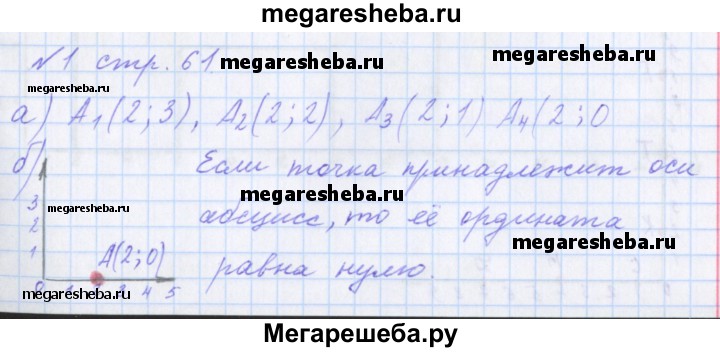 megaresheba.ru
№1 стр. 61. megaresheba.ru
megaresheba.ru
а) A₁(2;3), A₂(2;2), A₃(2;1) A₄(2;0
megaresheba.ru
б) Если точка принадлежит оси
megaresheba.ru
3 megaresheba.ru
2 абсцисс, то её ордината
1 A(2;0) равна нулю.
megaresheba.ru
0 3 4 5
megaresheba.ru
Мегарешеба.ру